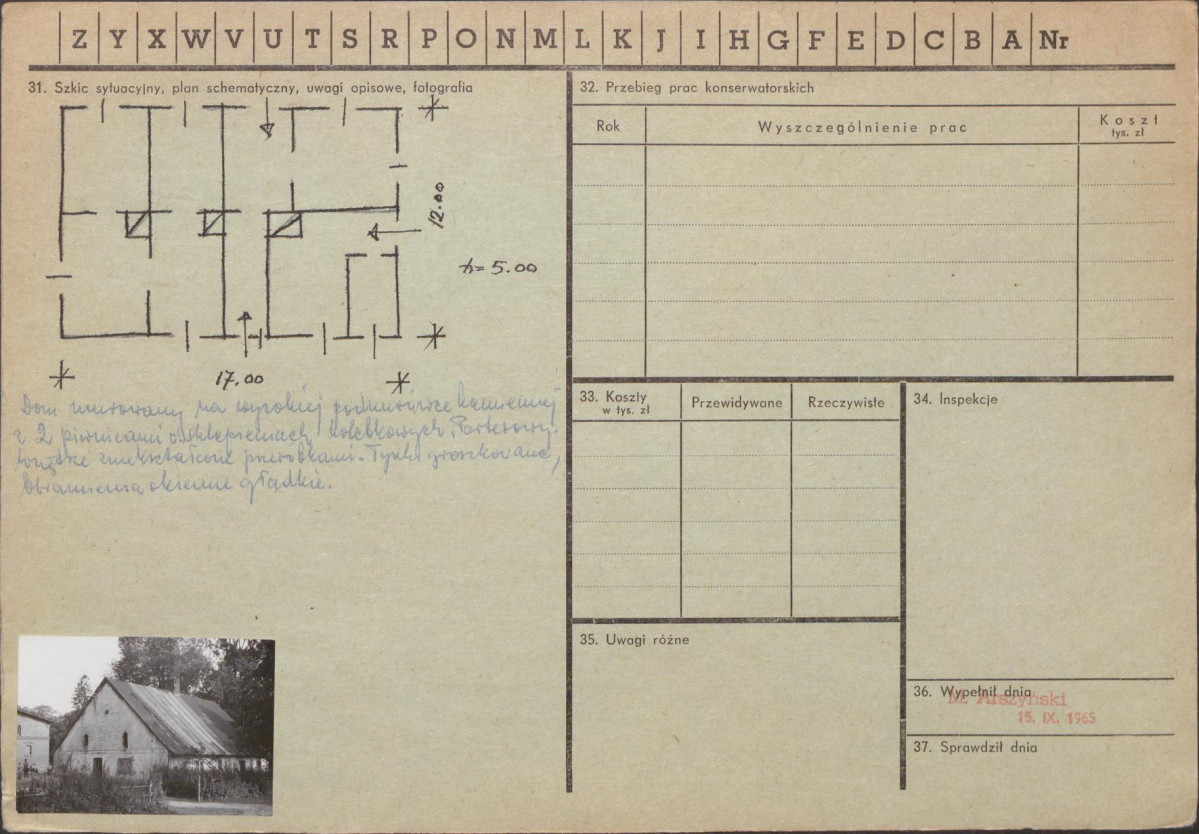 Z Y X W V U T S R P O N M L K J I H G F E D C B A Nr
31. Szkic sytuacyjny, plan schematyczny, uwagi opisowe, fotografia
12.00
h= 5.00
17.00
Dom murowany na wysokiej podmurówce kamiennej
z 2 piwnicami o sklepieniach kolebkowych. Parterowy.
zniekształcone przeróbkami. Tynki groszkowane,
Obramienia okienne gładkie.
32. Przebieg prac konserwatorskich
Rok
Wyszczególnienie prac
Koszł
tys. zł
33. Koszły
w tys. zł
Przewidywane
Rzeczywiste
34. Inspekcje
35. Uwagi różne
36. Wypełnił dnia
M. Arszyński
15. IX. 1965
37. Sprawdził dnia